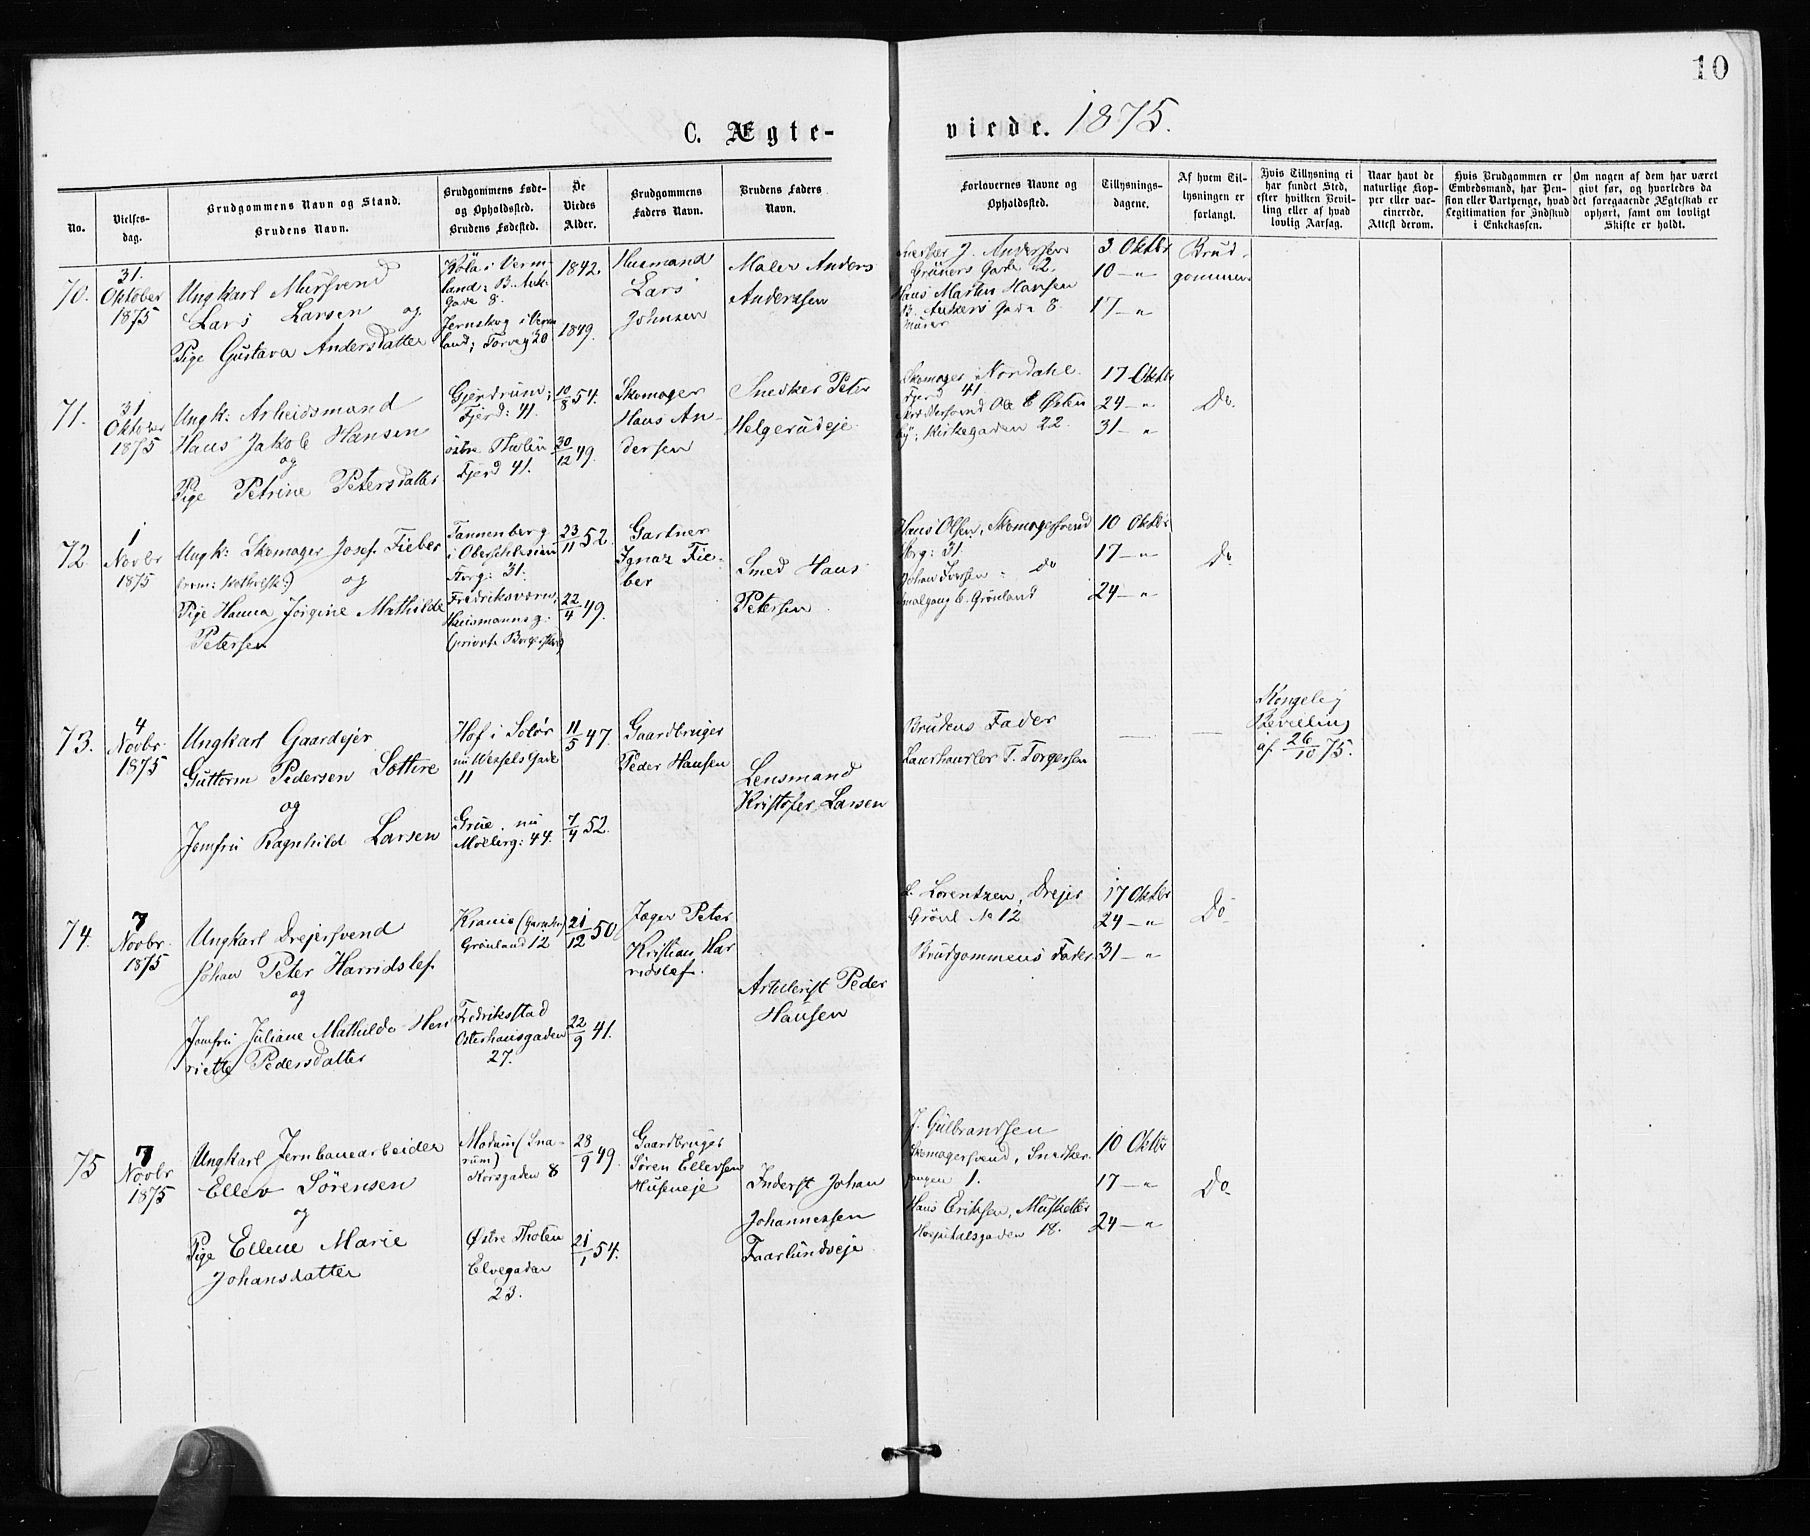 10
C. Ægte-
viede. 1875.
No.
Vielses-
dag.
Brudgommens Navn og Stand.
Brudens Navn.
Brudgommens Føde-
og Opholdssted.
Brudens Fødested.
De
Viedes
Alder.
Brudgommens
Faders Navn.
Brudens Faders
Navn.
Forlovernes Navne og
Opholdssted.
Tillysnings-
dagene.
Af hvem Til-
lysningen er
forlangt.
Hvis Tillysning ei
har fundet Sted,
efter hvilken Bevil-
ling eller af hvad
lovlig Aarsag.
Naar havt de
naturlige Kop-
per eller vac-
cinerede.
Attest derom.
Hvis Brudgommen er
Embedsmand, har Pen-
sion eller Vartpenge, hvad
Legitimation for Indskud
i Enkekassen.
Om nogen af dem har været
givt før, og hvorledes da
det foregaaende Ægteskab er
ophørt, samt om lovligt
Skifte er holdt.
70.
31.
Oktober
1875
Ungkarl Mursvend
Lars Larsen og
Pige Gustava Andersdatter
Köla i Verm-
land; B. Ank.
Gade 8
Jernskog i Verm
land; Torveg 20
1842.
1849.
Husmand
Lars
Johnsen
Maler Anders
Anderssen
Snedker J. Anderssen
Grüners Gade 2.
Hans Martin Hansen
B. Ankers Gade 8.
Murer
3. Oktbr
10 — "
17 — "
Brud-
gommen
71.
31
Oktober
1875
Ungk: Arbeidsmand
Hans Jakob Hansen
og
Pige Petrine Petersdatter
Gjerdrum;
Fjerd: 41.
östre Thoten
Fjerd 41.
10/8 54.
30/12 49.
Skomager
Hans An-
dersen
Snedker Peter
Helgerudeje
Skomager Nordahl
Fjerd 41
Ole E Østen
by; Kirkegaden 22.
17 Oktbr
24 — "
31 — "
Do.
72
1
Novbr
1875
Ungk: Skomager Josef Fieber
(rom: katholsk) og
Pige Hanna Jørgine Mathilde
Petersen
Tannenberg
i Oberschlesien
Storg: 31.
Fredriksværn,
Huusmannsg:
23/11 52.
22/4 49.
Gartner
Ignaz Fie-
ber
Smed Hans
Petersen
Hans Olsen, Skomagersvend
Storg: 31.
Johan Iversen - do
Smalgang 6. Grønland
10 Oktbr
17 — "
24 — "
Do
73.
4
Novbr.
1875
Ungkarl Gaardejer
Guttorm Pedersen Sottire
og
Jomfru Ragnhild Larsen
Hof i Solør
nu Wessels Gade
11
Grue, nu
Møllerg: 44.
11/5 47.
7/4 52.
Gaardbruger
Peder Hansen
Lensmand
Kristofer Larsen
Brudens Fader
T. Torgersen
—
—
Kongelig
Bevilling
af 26/10 75.
74.
7
Novbr.
1875
Ungkarl Drejersvend
Johan Peter Harridslef
og
Jomfru Juliane Mathilde Hen
riette Pedersdatter
Grønland 12
Fredriksstad
Osterhausgaden
27.
21/12 50
22/9 41.
Jæger Peter
Kristian Har
ridslef.
Artillerist Peder
Hansen
L. Lorentzen, Drejer
Grönl No 12
Brudgommens Fader
17 Oktbr
24 — "
31 — "
Do
75
7
Novbr
1875
Ungkarl Jernbanearbeider
Ellev Sørensen
og
Pige Ellene Marie
Johansdatter
Modum (Sna-
rum)
Korsgaden 8
Østre Thoten
Elvegaden
23.
28/9 49.
21/1 54.
Gaardbruger
Søren Ellevsen
Huseneje
Inderst Johan
Johannessen
Faarlundeje
J. Gulbrandsen
Skomagersvend, Snedker-
gangen 1.
Hans Eriksen, Musketer
Hospitalsgaden 18.
10 Oktbr
17 — "
24 — "
Do.